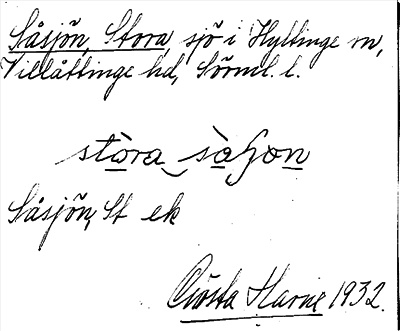 Såsjön, Stora, sjö i Hyltinge sn,
Villåttinge hd, Sörml. l.
stòra sàʃon
Såsjön, St ek
Gösta Harne 1932.